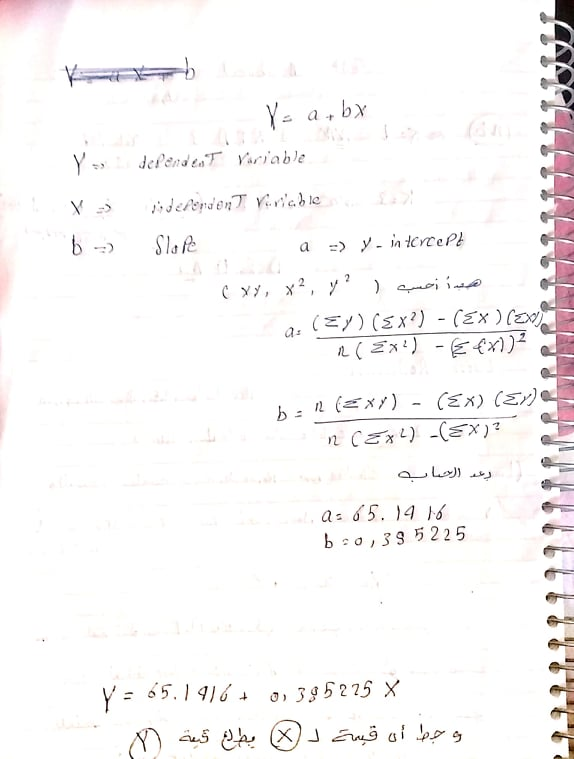 Y = a + bx
Y => dependent Variable
X => independent Variable
b => Slope a => y-intercept
هبدأ احسب ( xy, x², y² )
a = (Σy)(Σx²) - (Σx)(Σxy) / n(Σx²) - (Σ(x))²
b = n(Σxy) - (Σx)(Σy) / n(Σx²) - (Σx)²
بعد الحساب
a = 65.1416
b = 0,385225
Y = 65.1416 + 0,385225 X
و حط أى قيمة لـ (X) يطلع قيمة (Y)